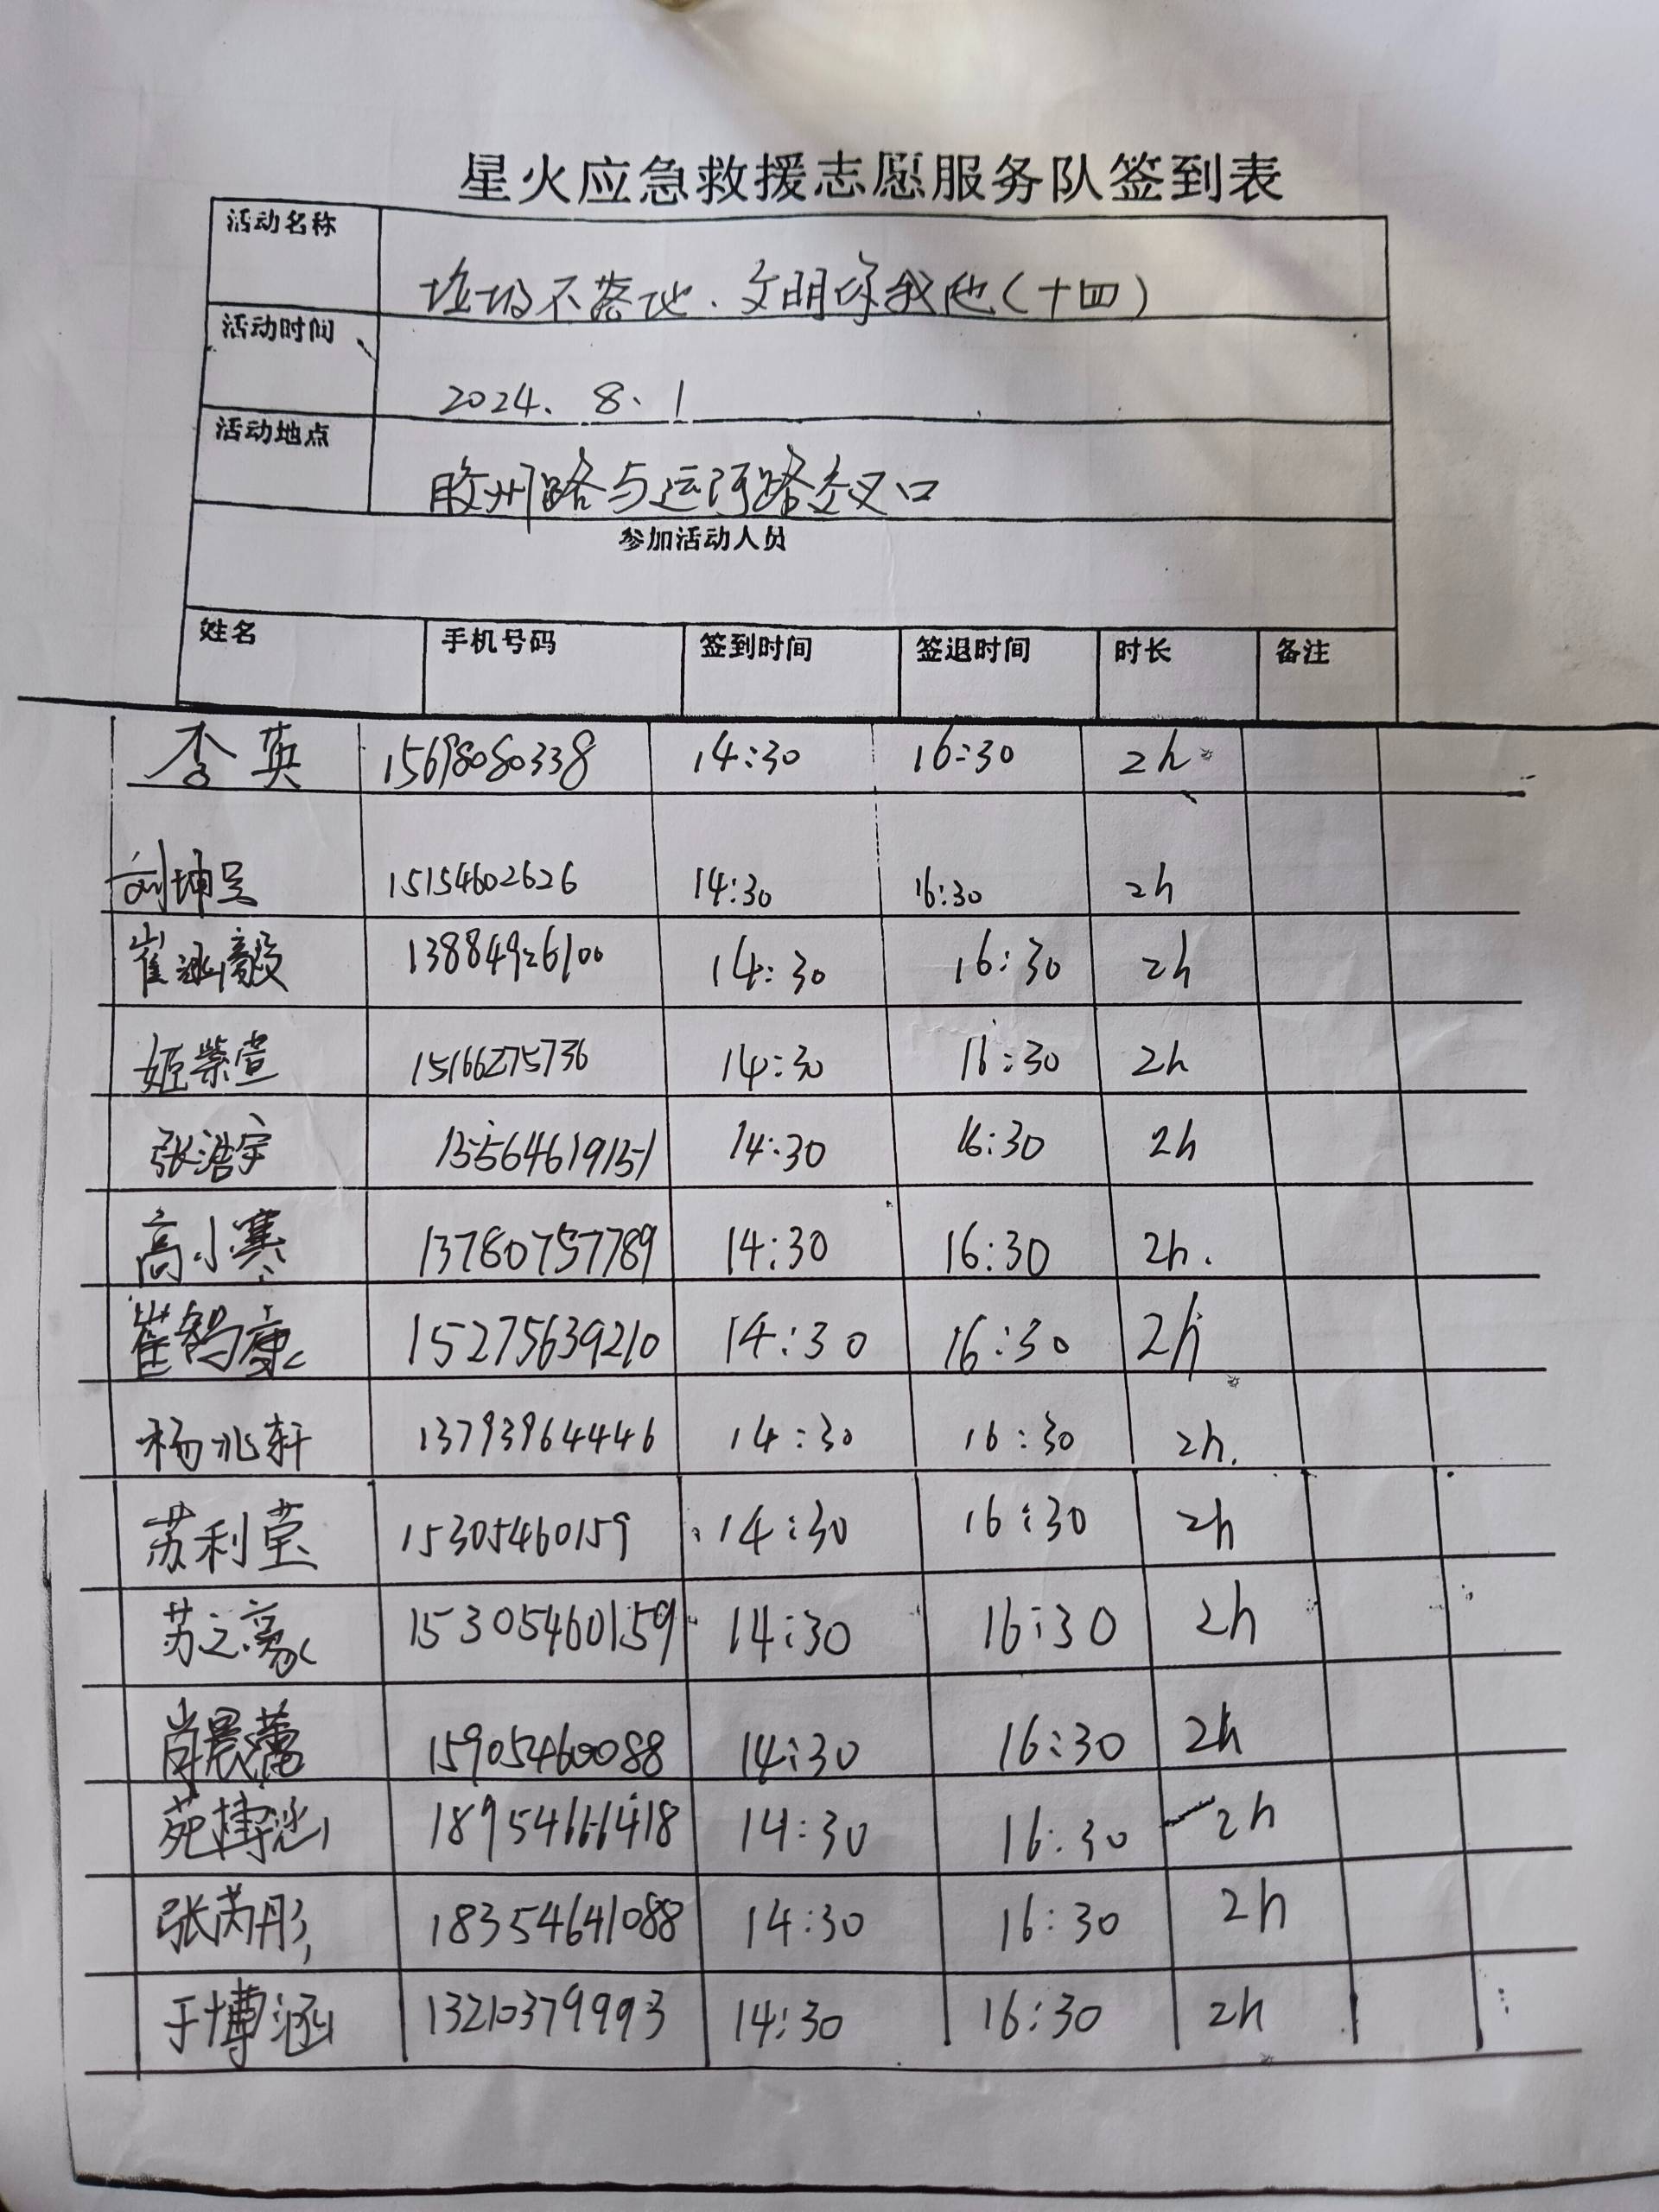 星火应急救援志愿服务队签到表
活动名称 垃圾不落地.文明你我他(十四)
活动时间 2024.8.1
活动地点 胶州路与运河路交叉口
参加活动人员
姓名 手机号码 签到时间 签退时间 时长 备注
李英 15698080338 14:30 16:30 2h
刘坤昊 15154602626 14:30 16:30 2h
崔涵毅 13884926100 14:30 16:30 2h
姬紫萱 15166275736 14:30 16:30 2h
张浩宇 14:30 16:30 2h
高小寒 13780757789 14:30 16:30 2h.
崔智康 15275639210 14:30 16:30 2h
杨兆轩 13793964446 14:30 16:30 2h.
苏利莹 15305460159 14:30 16:30 2h
苏之豪 15305460159 14:30 16:30 2h
肖晨 15905460088 14:30 16:30 2h
苑博涵 18954666418 14:30 16:30 2h
张芮彤 18354641088 14:30 16:30 2h
于博涵 13210379993 14:30 16:30 2h